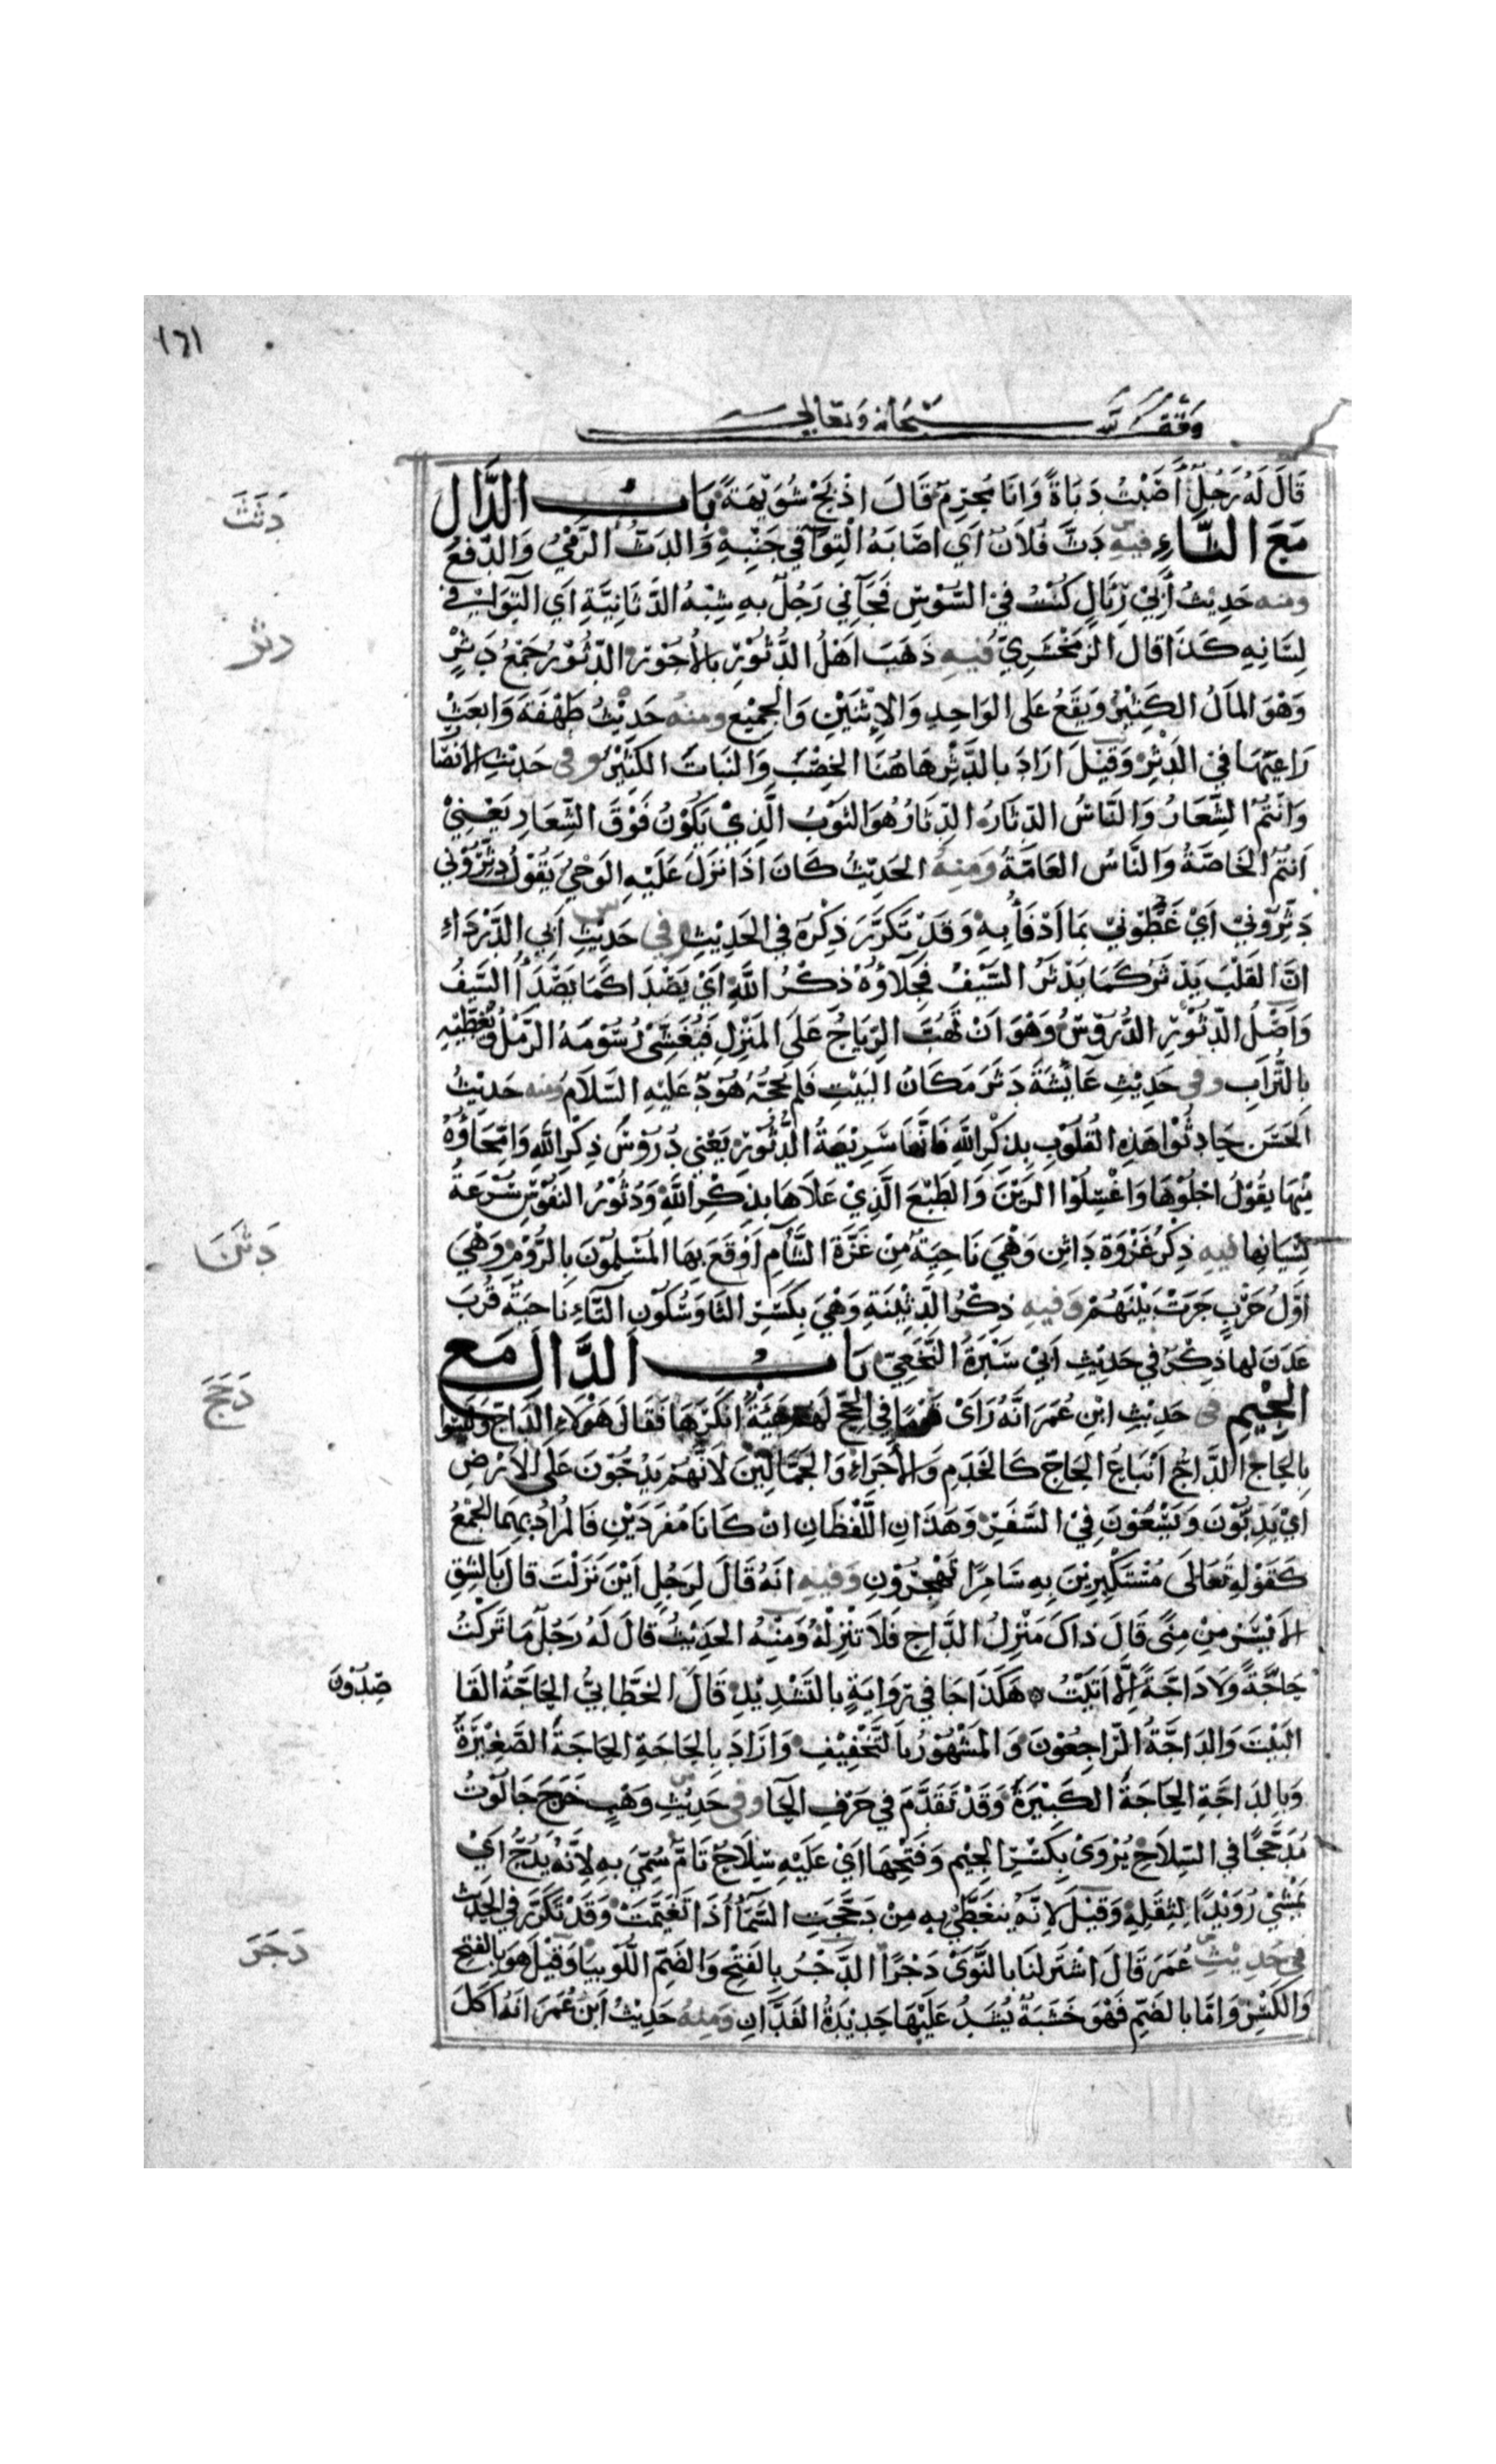 ١٦١
وَقْف لله سُبْحَانَه وَتَعَالى
قَالَ لَهُ رَجُلٌ أَصَبْتُ دَبَاةً وَأَنَا مُحْرِمٌ قَالَ اذْبَحْ شُوَيْهَةً بَابُ الدَّال
دَثَثَ
مَعَ الثَّاءِ فيه دَثَّ فُلَانٌ أي أصَابَهُ الْتِوَا في جَنْبِهِ وَالدَثُّ الرَّمْيُ وَالدَّفْعُ
ومنه حَدِيثُ أَبِيْ رِئَالٍ كُنْتُ فِيْ السُّوْسِ فَجَآءَنِي رَجُلٌ بِهِ شِبْهُ الدَّثَانِيَّةِ أي الْتِوَاءٌ في
دثر
لِسَانِهِ كَذَا قَالَ الزمَخْشَرِيّ فيه ذَهَبَ أَهْلُ الدُّثُوْرِ بِالأُجُوْرِ الدُّثُوْرُ جَمْعُ دَثْرٍ
وَهْوَ المَالُ الكَثِيْرُ وَيَقَعُ عَلَى الوَاحِدِ وَالإثْنَيْنِ وَالجَمِيْعِ ومنه حَدِيْثُ طَهْفَةَ وَابْعَثْ
رَاعِيَهَا في الدَثْرِ وَقِيْلَ ارَادَ بِالدَّثْرِ هَاهُنَا الخِصْبَ وَالنَبَاتَ الكَثِيْرَ وفي حَدِيْثِ الأنْصَا
وَأَنْتُمُ الشِّعَارُ وَالنَّاسُ الدِّثَارُ الدِّثَارُ هُوَ الثَوْبُ الَّذِيْ يَكُوْنُ فَوْقَ الشِّعَارِ يَعْنِيْ
أنْتُمُ الخَاصَّةُ وَالنَّاسُ العَامَّةُ وَمِنه الحَدِيْثُ كَانَ اذَا نَزَلَ عَلَيْهِ الوَحْيُ يَقُوْلُ دَثِّرُوْنِي
دَثِّرُوْنِيْ أَيْ غَطُّوْنِيْ بِمَا أَدْفَأُ بِهِ وَقَدْ تَكَرَّرَ ذِكْرُهُ في الحَدِيْثِ وفي حَدِيْثِ أَبِي الدَّرْدَاءِ
انَّ القَلْبَ يَدْثُرُ كَمَا يَدْثُرُ السَّيْفُ فَجَلَاؤُهُ ذِكْرُ اللَّهِ أيْ يَصْدَأ كَمَا يَصْدَأُ السَّيفُ
وَأَصْلُ الدُّثُوْرِ الدُّرُوْسُ وَهْوَ انْ تَهُبَّ الرِّيَاحُ عَلَى المَنْزِلِ فَتُغَشِّيْ رُسُوْمَهُ الرَّمْلُ وَتُغَطِّيْهِ
بِالتُّرَابِ وفي حَدِيْثِ عَائِشَةَ دَثَرَ مَكَانُ البَيْتِ فَلَمْ يَحُجَّهُ هُوْدٌ عَلَيْهِ السَّلَامُ ومنه حَدِيْثُ
الحَسَن حَادِثُوْا هَذِهِ القُلُوْبَ بِذِكْرِ اللَّهِ فَانَّهَا سَرِيْعَةُ الدُّثُوْرِ يَعْنِي دُرُوْسَ ذِكْرِ اللَّهِ وَامِّحَاؤُهُ
مِنْهَا يقُوْلُ اجْلُوْهَا وَاغْسِلُوْا الرَّيْنَ وَالطَّبْعَ الَّذِيْ عَلَاهَا بِذِكْرِ اللَّهِ وَدُثُوْرُ النُفُوْسِ سُرْعَةُ
دَثَنَ
نِسْيَانِهَا فيه ذِكْرُ غَزْوَةِ دَاثِنٍ وَهْيَ نَاحِيَةٌ مِنْ غَزَّةَ الشَّأْمِ أَوْقَعَ بِهَا المُسْلِمُوْنَ بِالرُّوْمِ وَهْيَ
أوَّلُ حَرْبٍ جَرَتْ بَيْنَهُمْ وَفيه ذِكْرُ الدَّثِيْنَةِ وَهْيَ بِكَسْرِ الثَا وَسُكُوْنِ اليَاءِ نَاحِيَةٌ قُرْبَ
عَدَنَ لَهَا ذِكْرٌ في حَدِيْثِ أَبِيْ سَبْرَةَ النَّخَعِيِّ بَابُ الدَّال مَع
دَجَجَ
الجِيْمِ في حَدِيْثِ ابْنِ عُمَرَ أَنَّهُ رَأَىْ قَوْمًا في الحَجّ لَهُمْ هَيْئَةٌ انْكَرَهَا فَقَالَ هَؤُلَاءِ الدَّاجُّ وَلَيْسُوا
بِالحَاجّ الدَّاجُّ أَتْبَاعُ الحَاجّ كَالخَدَمِ وَالأُجَرَاءِ وَالجَمَّالِيْنَ لأَنَّهُمْ يَدِجُّوْنَ عَلَى الأرْضِ
أيْ يَدِبُّوْنَ وَيَسْعَوْنَ فِيْ السَّفَرِ وَهَذَانِ اللَّفْظَانِ انْ كَانَا مُفْرَدَيْنِ فَالمُرَادُ بِهِمَا الجَمْعُ
كَقَوْلِهِ تَعَالَى مُسْتَكْبِرِيْنَ بِهِ سَامِرًا تَهْجُرُوْنَ وَفيه انَّهُ قَالَ لِرَجُلٍ أيْنَ نَزَلْتَ قَالَ بِالشِقِّ
الأيْسَرِ مِنْ مِنًى قَالَ ذَاكَ مَنْزِلُ الدَّاجِّ فَلَا تَنْزِلْهُ وَمِنْهُ الحَدِيْثُ قَالَ لَهُ رَجُلٌ مَا تَرَكْتُ
صِدُوْنَ
حَاجَّةً وَلَا دَاجَّةً إلَّا أتَيْتُ هَكَذَا جَا في رِوَايَةٍ بِالتَشْدِيْدِ قَالَ الخَطَّابِيُّ الحَاجَّةُ القَا
البَيْتَ وَالدَاجَّةُ الرَّاجِعُوْنَ وَالمَشْهُوْرُ بالتَّخْفِيْفِ وَارَادَ بِالحَاجَةِ الحَاجَةَ الصَغِيْرَةَ
وَبِالدَاجَةِ الحَاجَةَ الكَبِيْرَةَ وَقَدْ تَقَدَّمَ في حَرْفِ الحَا وفي حَدِيْثِ وَهْبٍ خَرَجَ جَالُوْتُ
مُدَجَّجًا في السِّلَاحِ يُرْوَىْ بِكَسْرِ الجِيْمِ وَفَتْحِهَا أيْ عَلَيْهِ سِلَاحٌ تَامٌّ سُمِّيَ بِهِ لأنَّهُ يَدِجُّ أيْ
يَمْشِيْ رُوَيْدًا لِثِقَلِهِ وَقِيْلَ لأنَّهُ يَتَغَطَّى بِهِ مِنْ دَجَّجَتِ السَّمَآءُ اذَا تَغَيَّمَتْ وَقَدْ تَكَرَّرَ في الحَدِيْث
دَجَرَ
في حَدِيْثِ عُمَرَ قَالَ اشْتَرِ لَنَا بِالنَّوَىْ دَجْرًا الدَّجْرُ بِالفَتْحِ وَالضَمِّ اللُّوْبِيَا وَقِيْلَ هُوَ بِالفَتْحِ
وَالكَسْرِ وَامَّا بِالضَمِّ فَهْوَ خَشَبَةٌ يُشَدُّ عَلَيْهَا حَدِيْدَةُ الفَدَّانِ وَمِنْهُ حَدِيْثُ ابْنِ عُمَرَ انَّهُ أكَلَ